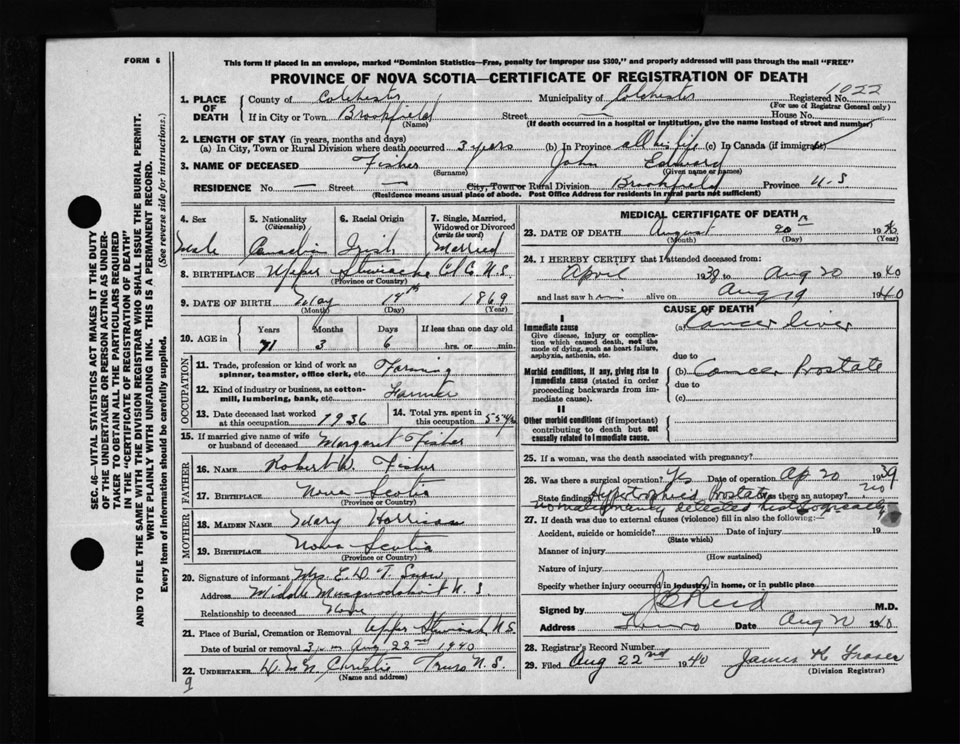 FORM 6
This form if placed in an envelope, marked "Dominion Statistics—Free, penalty for improper use $300," and properly addressed will pass through the mail "FREE"
PROVINCE OF NOVA SCOTIA—CERTIFICATE OF REGISTRATION OF DEATH
SEC. 46—VITAL STATISTICS ACT MAKES IT THE DUTY
OF THE UNDERTAKER OR PERSON ACTING AS UNDER-
TAKER TO OBTAIN ALL THE PARTICULARS REQUIRED
IN THE "CERTIFICATE OF REGISTRATION OF DEATH"
AND TO FILE THE SAME WITH THE DIVISION REGISTRAR WHO SHALL ISSUE THE BURIAL PERMIT.
WRITE PLAINLY WITH UNFADING INK. THIS IS A PERMANENT RECORD.
Every item of information should be carefully supplied. (See reverse side for instructions.)
1. PLACE OF DEATH
County of Colchester Municipality of Colchester Registered No. 1022
(For use of Registrar General only)
If in City or Town Brookfield Street — House No.
(Name) (If death occurred in a hospital or institution, give the name instead of street and number)
2. LENGTH OF STAY (in years, months and days)
(a) In City, Town or Rural Division where death occurred 3 years (b) In Province all his life (c) In Canada (if immigrant)
3. NAME OF DECEASED Fisher John Edward
(Surname) (Given name or names)
RESIDENCE No. — Street — City, Town or Rural Division Brookfield Province N.S
(Residence means usual place of abode. Post Office Address for residents in rural parts not sufficient)
4. Sex Male
5. Nationality (Citizenship) Canadian
6. Racial Origin Irish
7. Single, Married, Widowed or Divorced (write the word) Married
8. BIRTHPLACE Upper Stewiacke Col Co. N.S.
(Province or Country)
9. DATE OF BIRTH May 14th 1869
(Month) (Day) (Year)
10. AGE in Years Months Days If less than one day old
71 3 6 hrs. or min.
OCCUPATION
11. Trade, profession or kind of work as spinner, teamster, office clerk, etc. Farming
12. Kind of industry or business, as cotton-mill, lumbering, bank, etc. Farmer
13. Date deceased last worked at this occupation 1936
14. Total yrs. spent in this occupation 55 yrs
15. If married give name of wife or husband of deceased Margaret Fisher
FATHER
16. NAME Robert W. Fisher
17. BIRTHPLACE Nova Scotia
(Province or Country)
MOTHER
18. MAIDEN NAME Mary Harrison
19. BIRTHPLACE Nova Scotia
(Province or Country)
20. Signature of informant Mrs. E. W. T. Snow
Address Middle Musquodoboit N.S
Relationship to deceased
21. Place of Burial, Cremation or Removal Upper Stewiacke N.S
Date of burial or removal Aug 22nd 1940
22. UNDERTAKER Christie Truro N.S.
(Name and address)
9
MEDICAL CERTIFICATE OF DEATH
23. DATE OF DEATH August 20th 1940
(Month) (Day) (Year)
24. I HEREBY CERTIFY that I attended deceased from:
April 1939 to Aug 20 1940
and last saw him alive on Aug 19 1940
CAUSE OF DEATH
I
Immediate cause (a) Cancer liver
Give disease, injury or complica-
tion which caused death, not the
mode of dying, such as heart failure,
asphyxia, asthenia, etc.
due to
Morbid conditions, if any, giving rise to (b) Cancer Prostate
immediate cause (stated in order due to
proceeding backwards from im-
mediate cause). (c)
II
Other morbid conditions (if important)
contributing to death but not
causally related to immediate cause.
25. If a woman, was the death associated with pregnancy?
26. Was there surgical operation? Yes Date of operation Ap 20 1939
State findings Hypertrophied Prostate Was there an autopsy? no
no malignancy detected histologically
27. If death was due to external causes (violence) fill in also the following:—
Accident, suicide or homicide? Date of injury 19
(State which)
Manner of injury
(How sustained)
Nature of injury
Specify whether injury occurred in industry, in home, or in public place
Signed by J B Reid M.D.
Address Truro Date Aug 20 1940
28. Registrar's Record Number
29. Filed Aug 22nd 1940 James K Fraser
(Division Registrar)